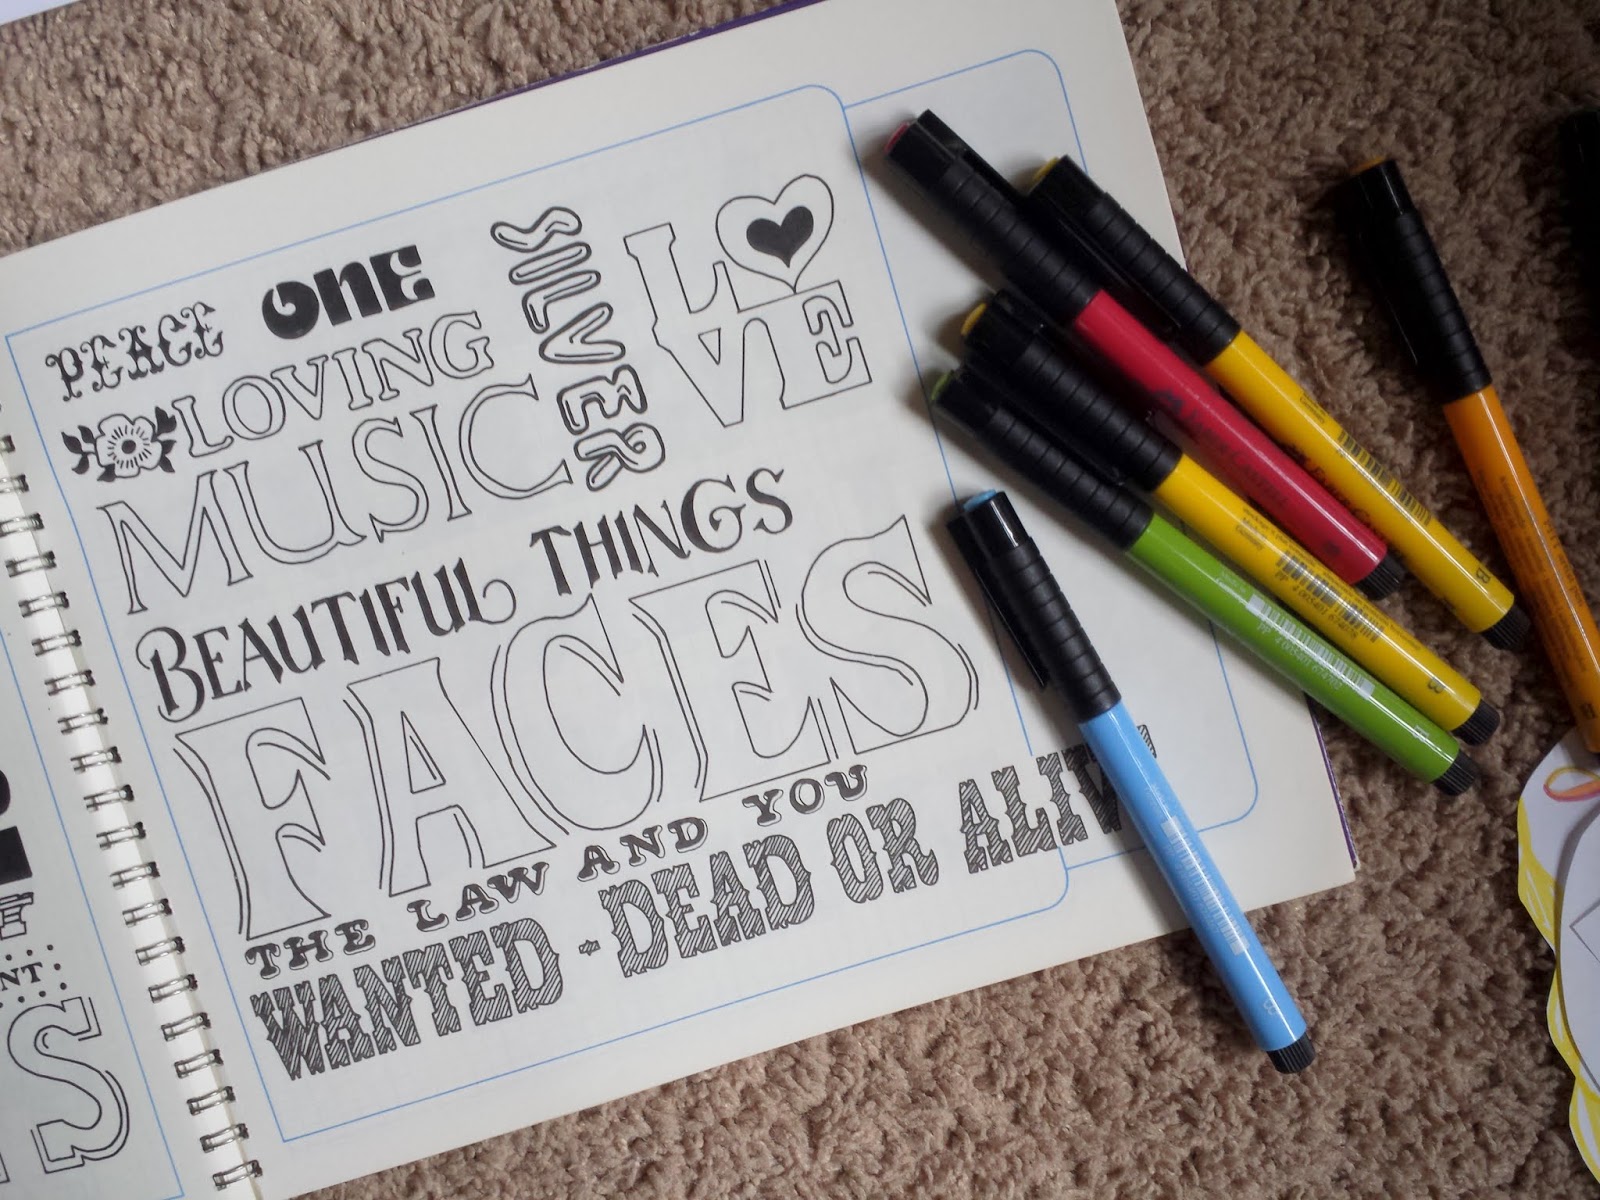 PEACE ONE
LOVING
MUSIC
SILVER
LOVE
BEAUTIFUL THINGS
FACES
THE LAW AND YOU
WANTED - DEAD OR ALIVE
NT
S
B
B
B